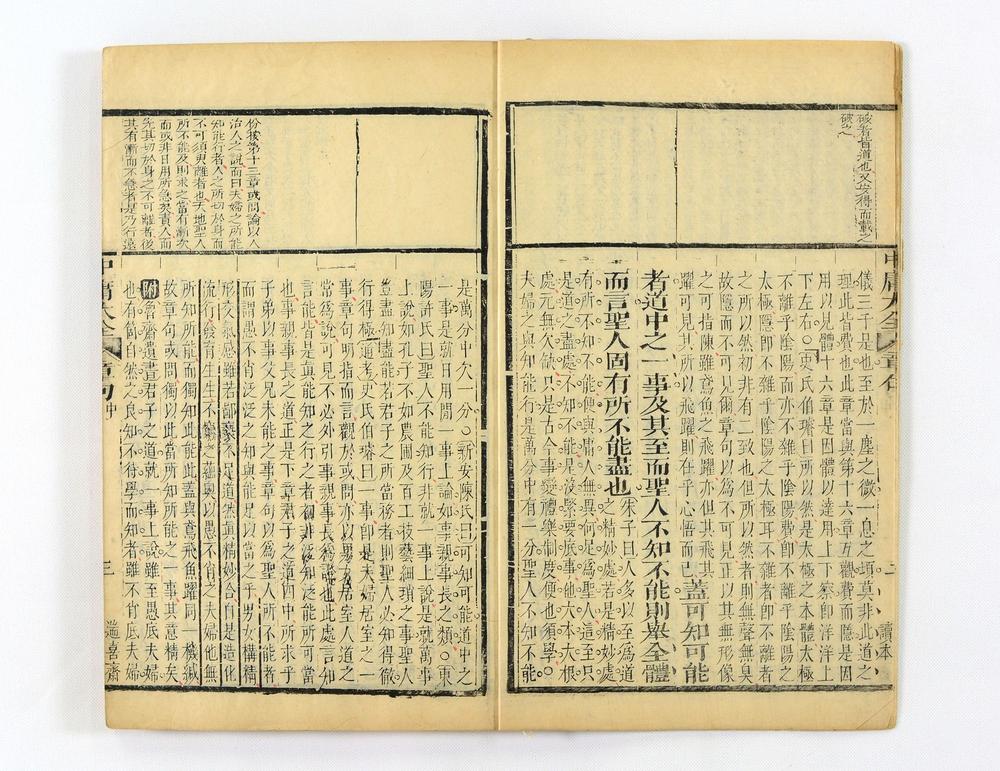 破者皆道也又安得而載之
破之
儀三千是也至於一塵之微一息之頃莫非此道之
理此皆費也此章當與第十六章互觀費而隱是因
用以見體十六章是因體以達用上下察卽洋洋上
下左右○吏氏伯璿曰所以然是太極之本體太極
不離乎陰陽而亦不雜乎陰陽費卽不離乎陰陽之
太極隱卽不雜乎陰陽之太極耳不雜者卽不離者
之所以然初非有二致也但所以然者則無聲無臭
故隱而不可見爾章句以爲不可見正以其無形像
之可指陳雖鳶魚之飛躍亦但其飛其
躍可見其所以飛躍則在乎心悟而已蓋可知可能
者道中之一事及其至而聖人不知不能則舉全體
而言聖人固有所不能盡也朱子曰人多以至爲道
之精妙處若是精妙處
有所不知不能便與庸人無異何足爲聖人這至只
是道之盡處不知不能是沒緊要底事他大本大根
處元無欠缺只是古今事變禮樂制度便也須學○
夫婦之與知能行是萬分中有一分聖人不知不能
中庸大全 章句
二
讀本
份按第十三章或問論以人
治人之說而曰夫婦之所能
知能行者人之所切於身而
不可須臾離者也天地聖人
所不能及則求之當有漸次
而或非日用所急矣責人而
先其切於身之不可離者後
其有漸而不急者是乃行遠
是萬分中欠一分○新安陳氏曰可知可能道中之
一事是就日用間一事上論如事親事長之類○東
陽許氏曰聖人不能知行非就一事上說是就萬事
上說如孔子不如農圃及百工技藝細瑣之事聖人
豈盡知盡能若君子之所當務者則聖人必知得徹
行得極 通考史氏伯璿曰一事卽是夫婦居室之一
事章句明指而言觀於或問亦以男女居室人道之
常爲說可見不必外引事親事長爲說也此處言知
言能皆是眞能知之行之者初非泛知泛能所可當
也事親事長之道正是下章君子之道四中所求乎
子弟以事父兄未能之事章句以爲聖人所不能者
而謂愚不肖泛泛之知與能足以當之乎男女構精
形交氣感雖若鄙褻不足道然眞精妙合自是造化
流行發育生生不窮之蘊奧以愚不肖之夫婦他無
所知所能而獨知此能此蓋與鳶飛魚躍同一機緘
故章句或問獨以此當所知所能之一事其意精矣
附魯齋遺書君子之道就一事上說雖至愚底夫婦
也有箇自然之良知不待學而知者雖不肖底夫婦
中庸大全 章句 中
三
遄喜齋